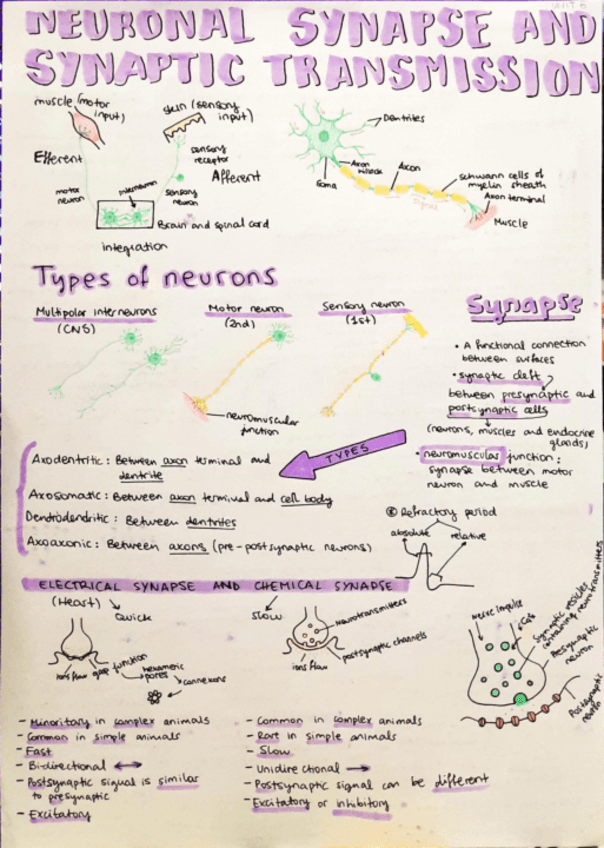 UNIT 6
NEURONAL SYNAPSE AND
SYNAPTIC TRANSMISSION
muscle (motor
input)
skin (sensory
input)
Efferent
sensory
receptor
Afferent
motor
neuron
interneuron
sensory
neuron
Brain and spinal cord
integration
Dendrites
Axon
hillock
Axon
Soma
Schwann cells of
myelin sheath
Signal
Axon terminal
Muscle
Types of neurons
Multipolar interneurons
(CNS)
Motor neuron
(2nd)
Sensory neuron
(1st)
neuromuscular
junction
Synapse
• A functional connection
between surfaces
• synaptic cleft
between presynaptic and
postsynaptic cells
(neurons, muscles and endocrine
glands)
• neuromuscular junction:
synapse between motor
neuron and muscle
TYPES
Axodentritic: Between axon terminal and
dentrite
Axosomatic: Between axon terminal and cell body
Dendrodendritic: Between dentrites
Axoaxonic: Between axons (pre-postsynaptic neurons)
Refractory period
absolute
relative
ELECTRICAL SYNAPSE AND CHEMICAL SYNAPSE
(Heart)
Quick
ions flow
gap junction
hexameric
pores
connexons
Slow
Neurotransmitters
postsynaptic channels
ions flow
Nerve impulse
Synaptic vesicles
containing neurotransmitters
Presynaptic
neuron
Postsynaptic
neuron
- Minoritary in complex animals
- Common in simple animals
- Fast
- Bi-directional ↔
- Postsynaptic signal is similar
to presynaptic
- Excitatory
- Common in complex animals
- Rare in simple animals
- Slow
- Unidirectional →
- Postsynaptic signal can be different
- Excitatory or inhibitory